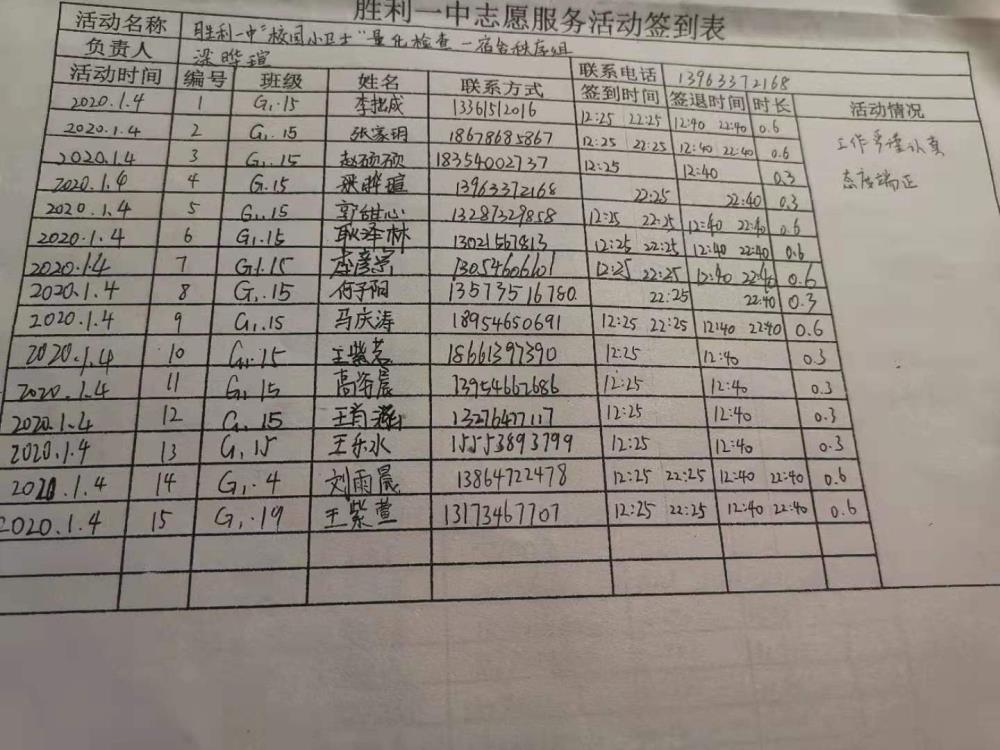 胜利一中志愿服务活动签到表
活动名称 胜利一中"校园小卫士"量化检查-宿舍秩序组
负责人 梁晔瑄 联系电话 13963372168
活动时间 编号 班级 姓名 联系方式 签到时间 签退时间 时长 活动情况
2020.1.4 1 G1.15 李拙成 13361512016 12:25 22:25 12:40 22:40 0.6
2020.1.4 2 G1.15 张家玥 18678685867 12:25 22:25 12:40 22:40 0.6
工作 认真
2020.1.4 3 G1.15 赵硕硕 18354002737 12:25 12:40 0.3
态度端正
2020.1.4 4 G.15 梁晔瑄 13963372168 22:25 22:40 0.3
2020.1.4 5 G1.15 13287329858 12:25 22:25 12:40 22:40 0.6
2020.1.4 6 G1.15 耿泽林 13021567813 12:25 22:25 12:40 22:40 0.6
2020.1.4 7 G1.15 13054606101 12:25 22:25 12:40 22:40 0.6
2020.1.4 8 G1.15 何子阳 13573516780 22:25 22:40 0.3
2020.1.4 9 G1.15 马庆涛 18954650691 12:25 22:25 12:40 22:40 0.6
2020.1.4 10 G1.15 王紫茗 18661397390 12:25 12:40 0.3
2020.1.4 11 G1.15 高海晨 13954662686 12:25 12:40 0.3
2020.1.4 12 G1.15 王肖涵 13276477117 12:25 12:40 0.3
2020.1.4 13 G1.15 王乐水 15553893799 12:25 12:40 0.3
2020.1.4 14 G1.4 刘雨晨 13864722478 12:25 22:25 12:40 22:40 0.6
2020.1.4 15 G1.19 王紫萱 13173467707 12:25 22:25 12:40 22:40 0.6